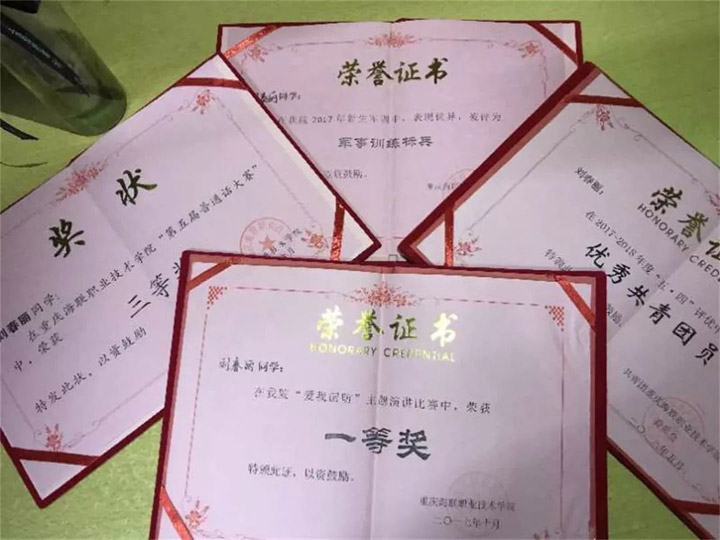 荣誉证书
同学:
在我院2017年新生军训中,表现优异,被评为
军事训练标兵
奖状
刘春丽同学:
在重庆海联职业技术学院“第五届普通话大赛”
中,荣获
三等
特发此状,以资鼓励
荣誉证书
HONORARY CREDENTIAL
刘春丽同学:
在我院“ ”主题演讲比赛中,荣获
一等奖
特颁此证,以资鼓励。
重庆海联职业技术学院
二〇一七年十月
荣誉证
HONORARY CREDENTIAL
刘春丽:
在2017-2018年度“五·四”评优
优秀共青团员
共青团重庆海联职业技术学院
委员会
二〇一八年五月